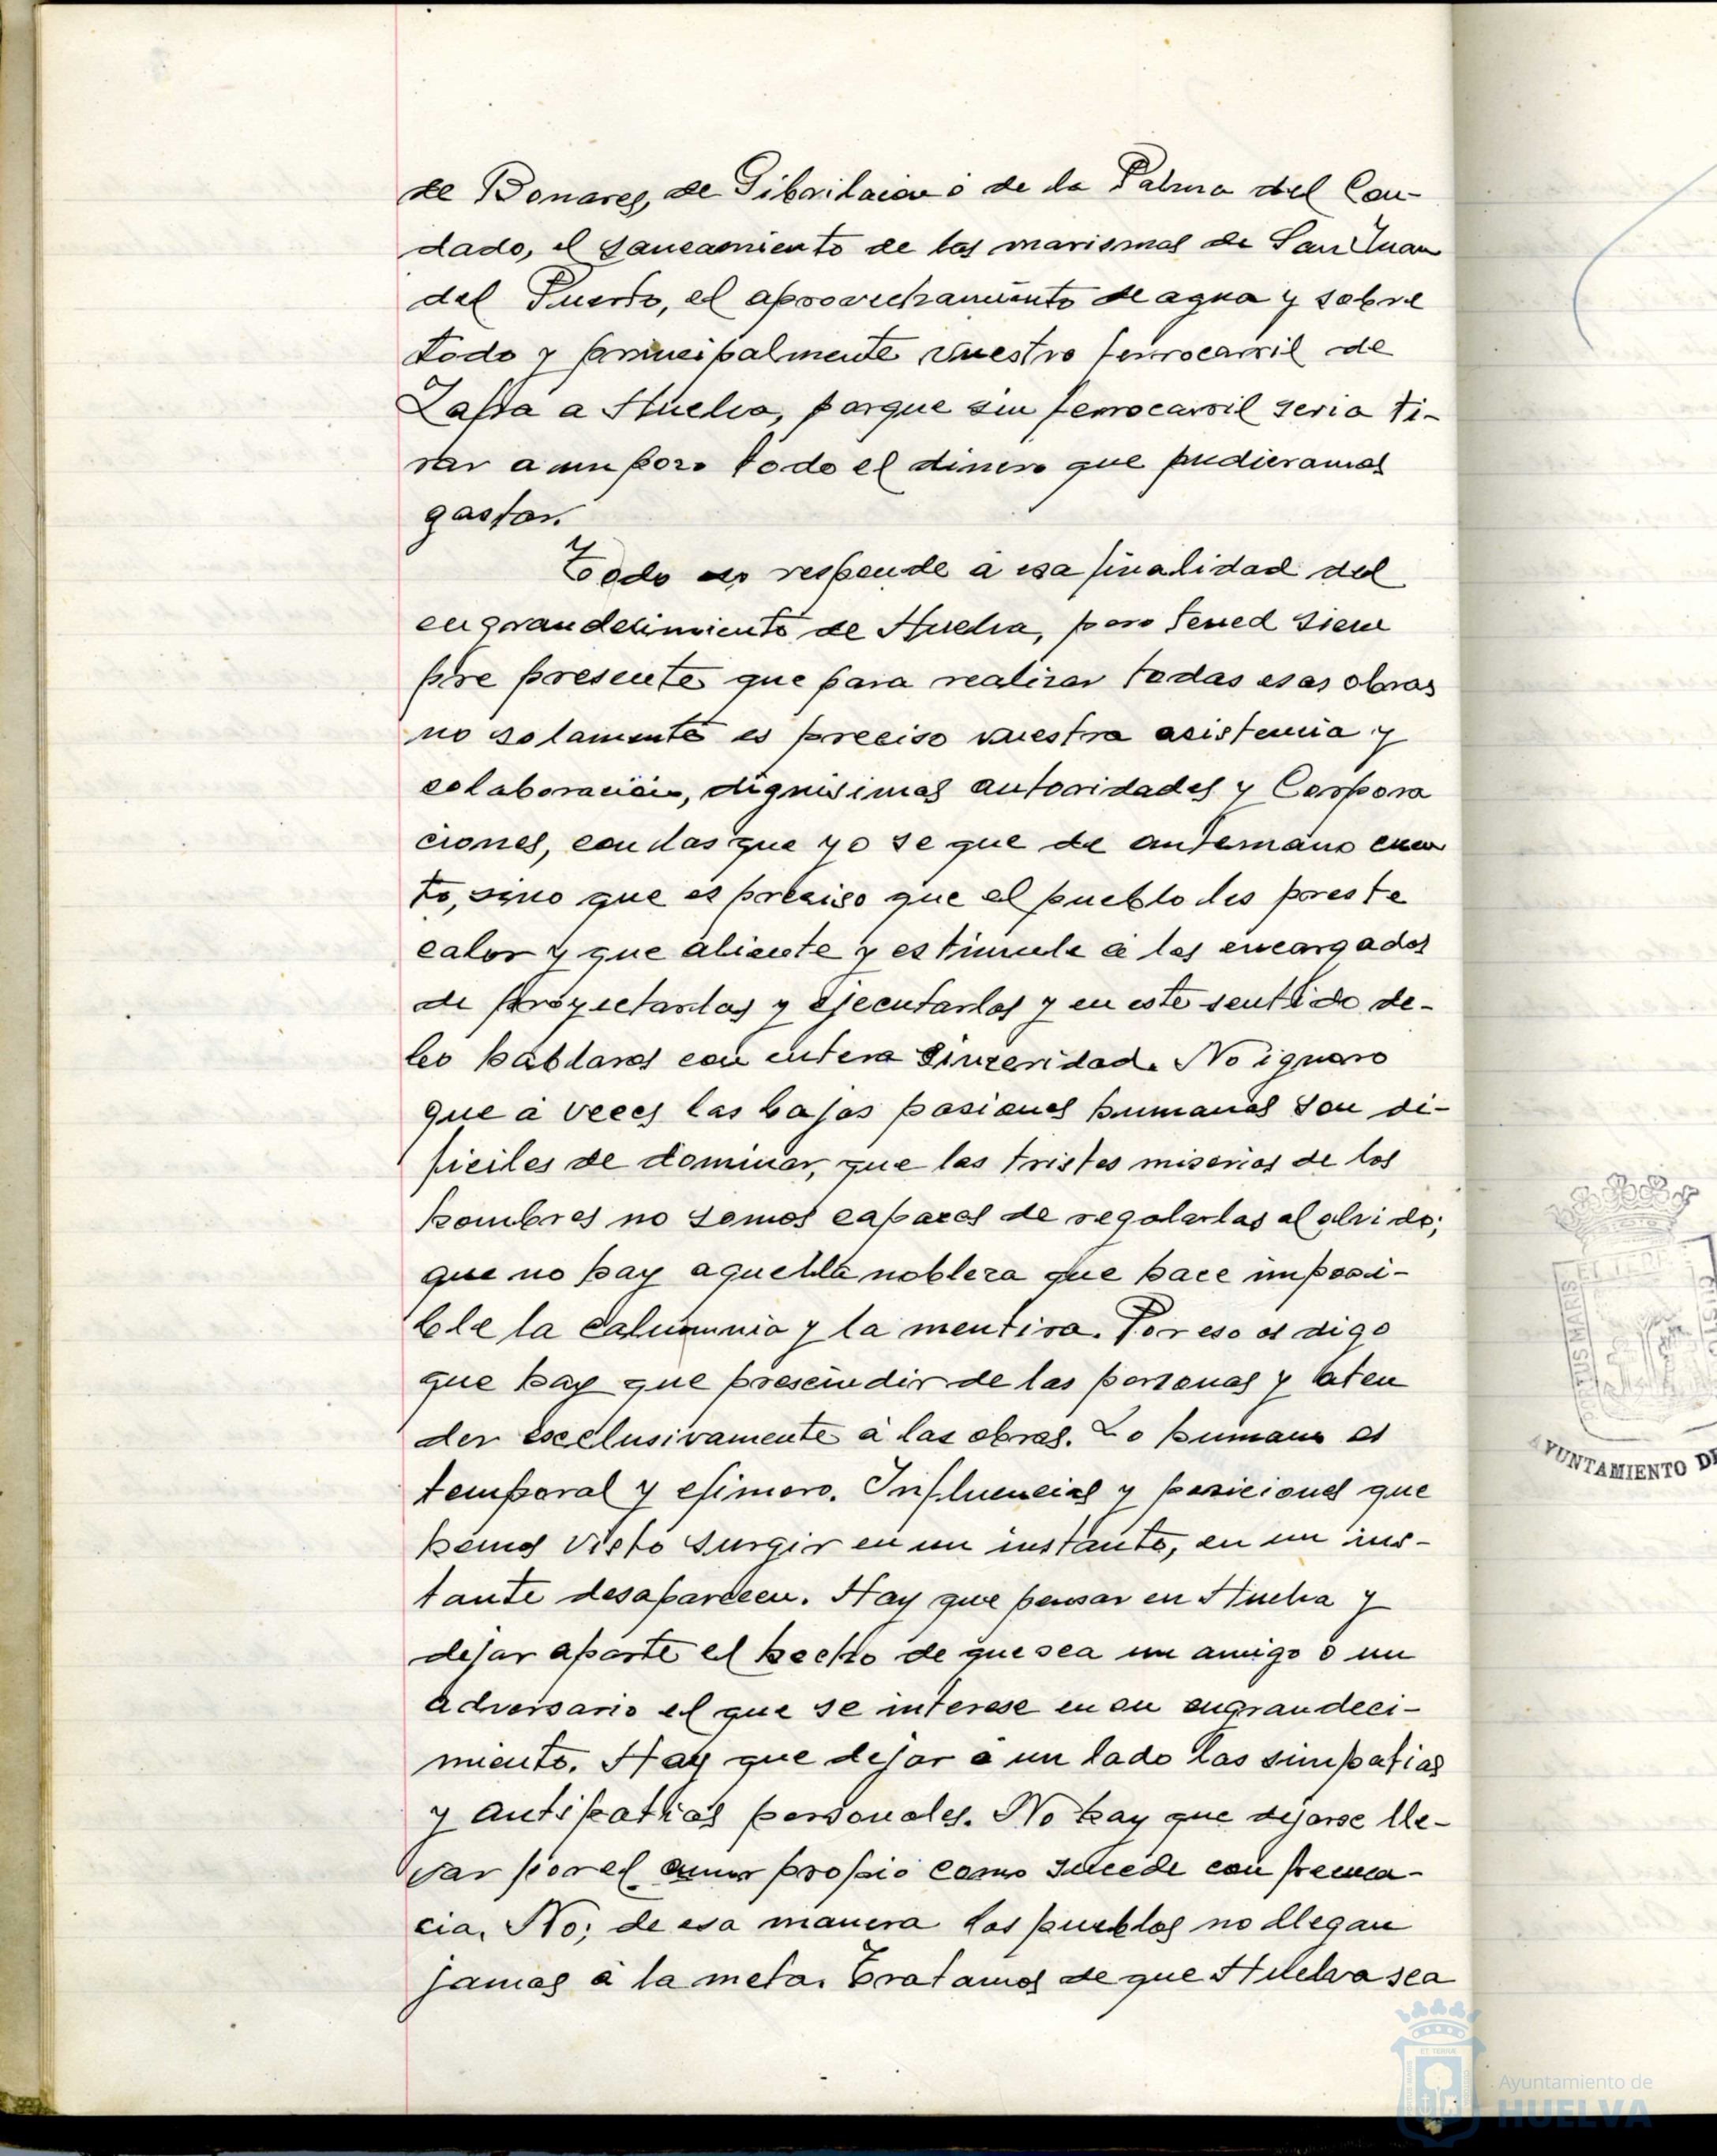 de Bonares, de Gibraleon o de la Palma del Con-
dado, el saneamiento de las marismas de San Juan
del Puerto, el aprovechamiento de agua y sobre
todo y principalmente nuestro ferrocarril de
Zafra a Huelva, porque sin ferrocarril seria ti-
rar a un pozo todo el dinero que pudieramos
gastar.
Todo responde á esa finalidad del
engrandecimiento de Huelva, pero tened siem
pre presente que para realizar todas esas obras
no solamente es preciso vuestra asistencia y
colaboración, dignisimas autoridades y Corpora
ciones, con las que yo se que de antemano cuen
to, sino que es preciso que el pueblo les preste
calor y que aliente y estimule á los encargados
de proyectarlas y ejecutarlas y en este sentido de-
bo hablaros con entera sinceridad. No ignoro
que á veces las bajas pasiones humanas son di-
ficiles de dominar, que las tristes miserias de los
hombres no somos capaces de regalarlas al olvido;
que no hay aquella nobleza que hace imposi-
ble la calumnia y la mentira. Por eso os digo
que hay que prescindir de las personas y aten
der exclusivamente á las obras. Lo humano es
temporal y efimero. Influencias y posiciones que
hemos visto surgir en un instante, en un ins-
tante desaparecen. Hay que pensar en Huelva y
dejar aparte el hecho de que sea un amigo ó un
adversario el que se interese en su engrandeci-
miento. Hay que dejar á un lado las simpatias
y antipatias personales. No hay que dejarse lle-
var por el amor propio como sucede con frecuen-
cia. No; de esa manera los pueblos no llegan
jamas á la meta. Tratamos de que Huelva sea
AYUNTAMIENTO DE
Ayuntamiento de
HUELVA